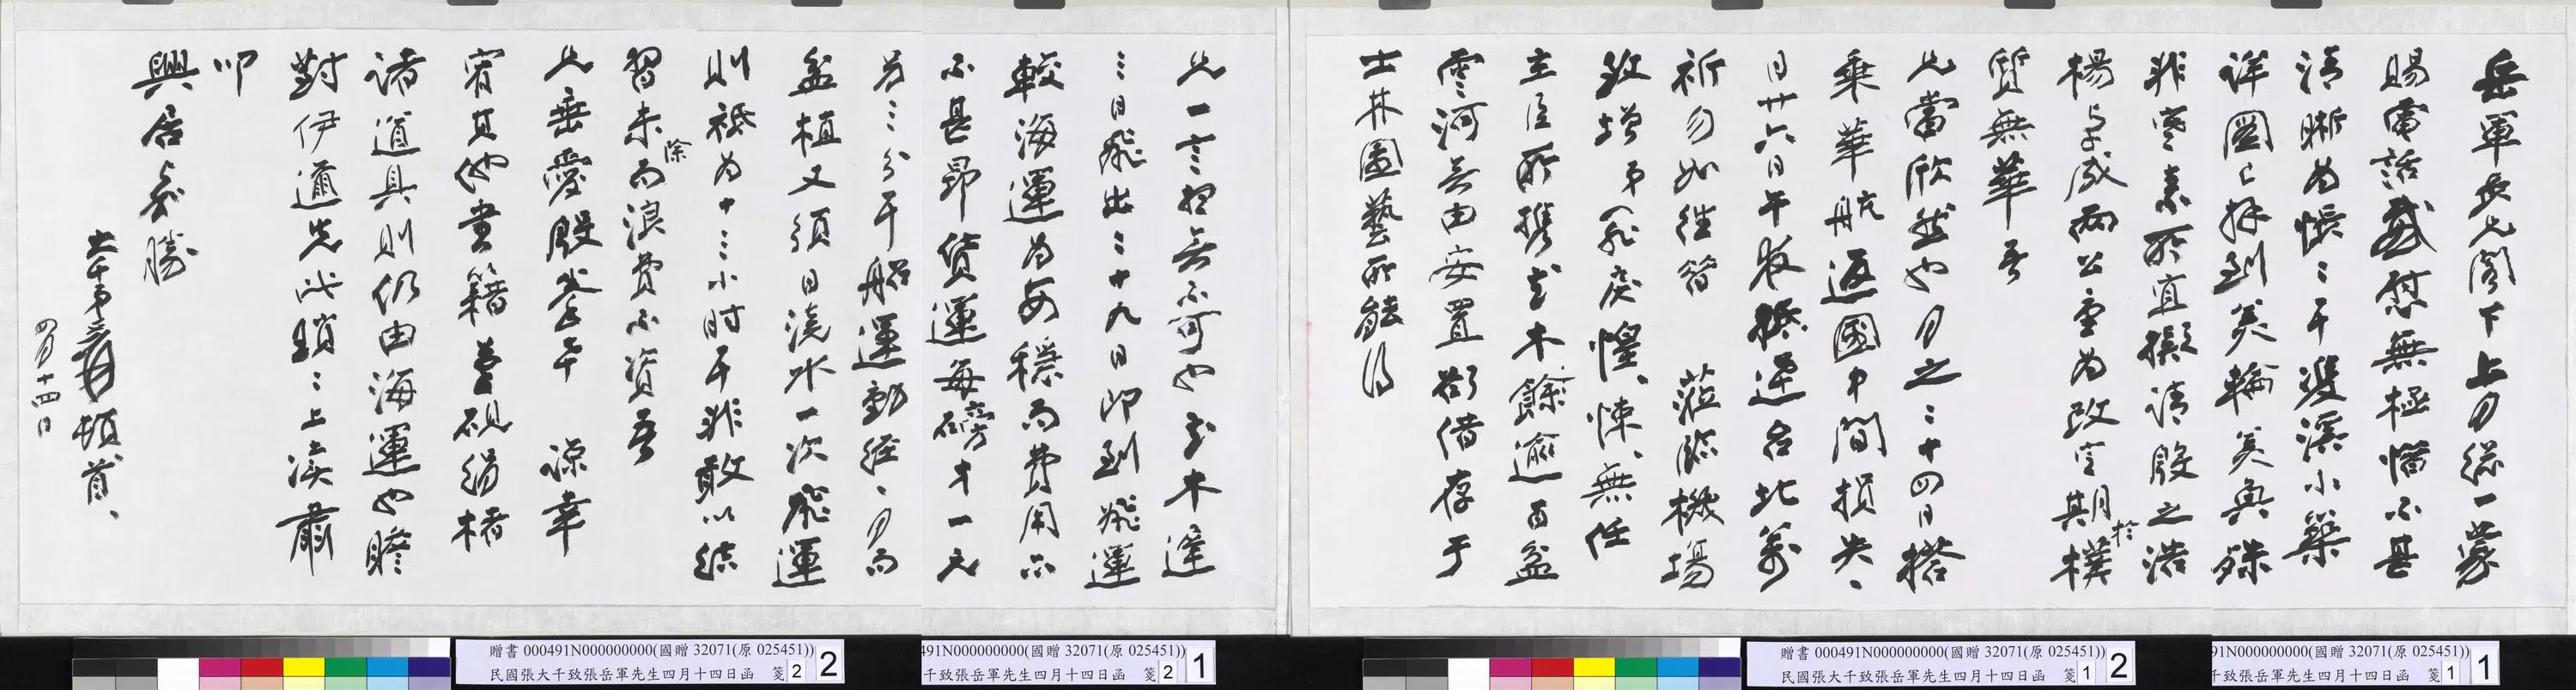 岳軍長兄閣下上月總一蒙
賜電話感慰無極惜不甚
清晰為悵悵于雙溪小築
詳圖已拜到美輪美奐殊
非寒素所宜擬請殷之浩
楊卓成兩公重為改定期於樸
質無華吾
兄當欣然也月之二十四日搭
乘華航返國中間損失一
日廿六日午夜抵達台北萬
祈勿如往昔 蒞臨機場
致增弟罪戾惶惶悚悚無任
主臣所攜花木餘逾百盆
雲河無由安置欲借存于
士林園藝所能得
兄一言想無不可也花木達
三日飛出二十九日即到飛運
較海運為安穩而費用亦
不甚昂貨運每磅才一元
另三分耳船運動經月而
盆植又須日澆水一次飛運
則祗為十三小時耳非敢以結
習未除而浪費不資吾
兄垂愛殷拳幸 諒幸
宥其他書籍筆硯縑楮
諸道具則仍由海運也瞻
對伊邇先此瑣瑣上瀆肅
叩
興居多勝
大千弟爰頓首
四月十四日
贈書 000491N000000000(國贈 32071(原 025451))
民國張大千致張岳軍先生四月十四日函 箋 1 2
91N000000000(國贈 32071(原 025451))
千致張岳軍先生四月十四日函 箋 1 1
贈書 000491N000000000(國贈 32071(原 025451))
民國張大千致張岳軍先生四月十四日函 箋 2 2
491N000000000(國贈 32071(原 025451))
千致張岳軍先生四月十四日函 箋 2 1